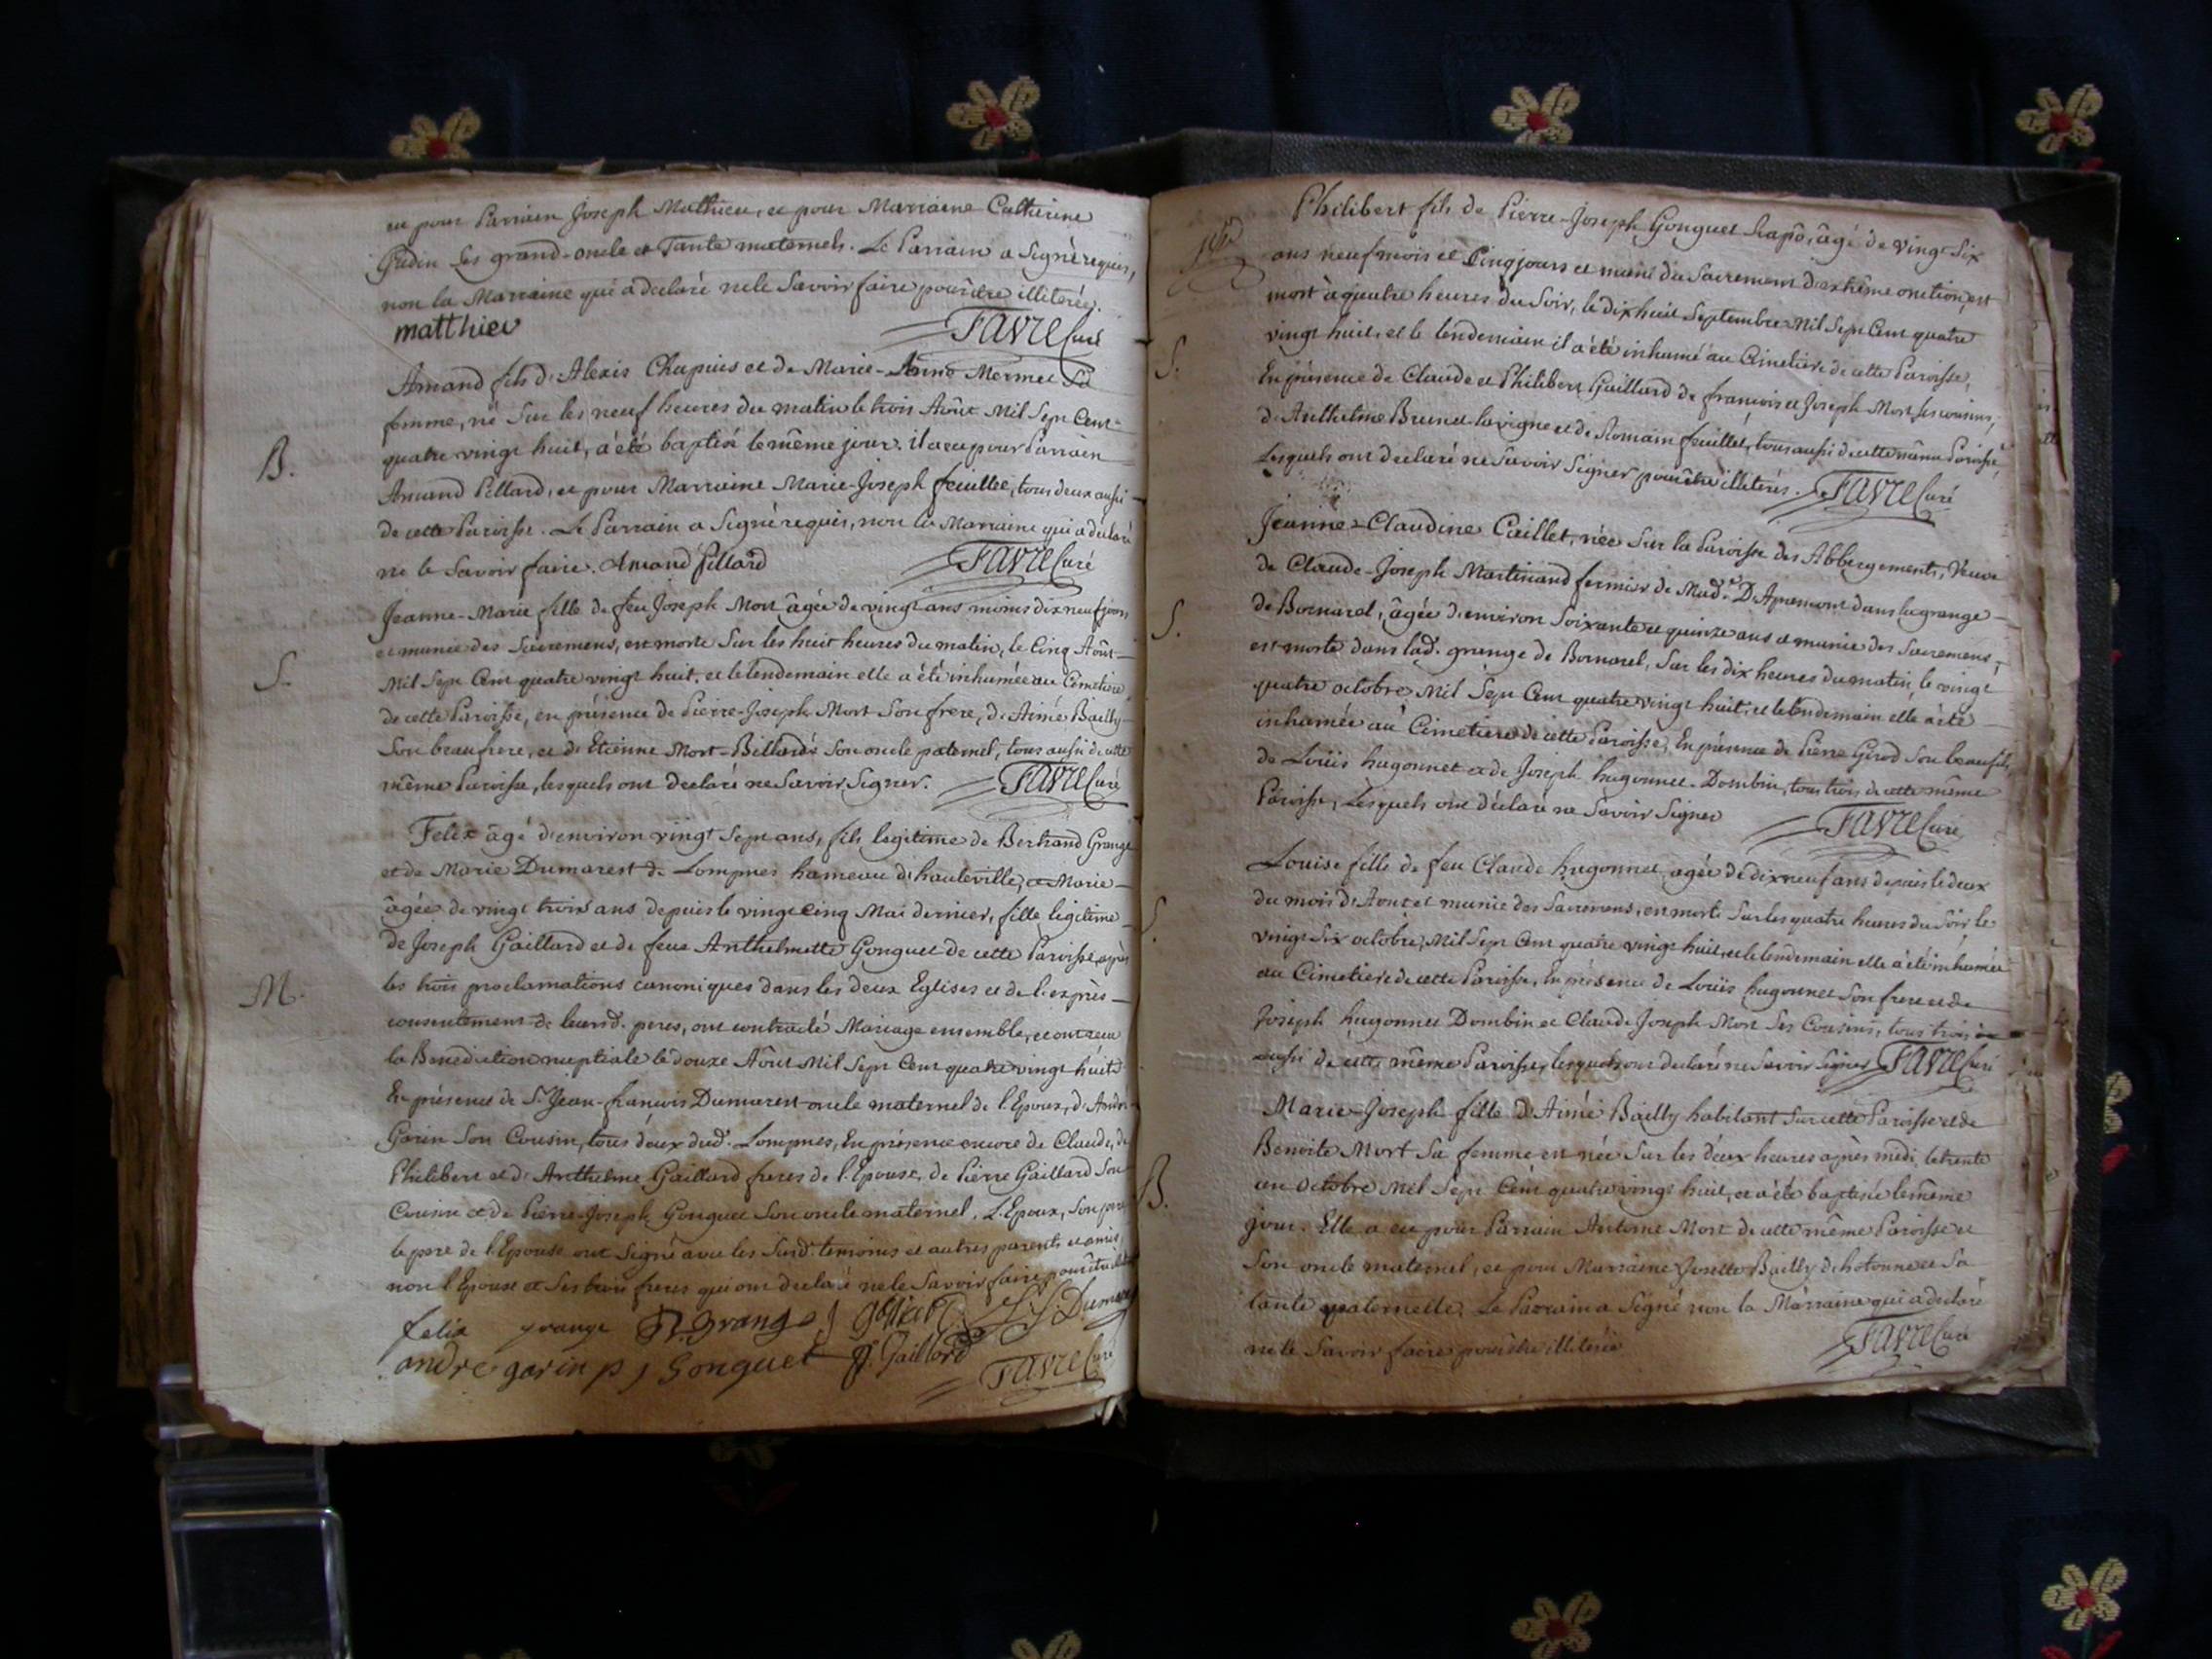 eu pour Parrien Joseph Mathieu, et pour Marraine Catherine
Gudin Ses grand-oncle et Tante maternels. Le Parrain a Signé requis,
non la Marraine qui a declaré ne le Savoir faire pour être illiterée.
matthieu FAVRE Curé
B.
Amand fils d'Alexis Chapuis et de Marie-Anne Mermet Sa
femme, né Sur les neuf heures du matin le trois Août Mil Sept Cent
quatre vingt huit, a été baptisé le même jour. il a eu pour Parrain
Amand Pillard, et pour Marraine Marie-Joseph feuillet, tous deux aussi
de cette Paroisse. Le Parrain a Signé requis, non la Marraine qui a declaré
ne le Savoir faire. Amand Pillard FAVRE Curé
S.
Jeanne-Marie fille de feu Joseph Mort âgée de vingt ans moins dix neuf jours
et munie des Sacremens, est morte Sur les huit heures du matin, le Cinq Août
Mil Sept Cent quatre vingt huit, et le lendemain elle a été inhumée au Cimetiere
de cette Paroisse, en présence de Pierre-Joseph Mort Son frere, d'Aimé Bailly
Son beaufrere, et d'Etienne Mort-Billardé Son oncle paternel, tous aussi de cette
même Paroisse, lesquels ont declaré ne Savoir Signer. FAVRE Curé
M.
Felix âgé d'environ vingt Sept ans, fils legitime de Bertrand Grange
et de Marie Dumarest de Lompnes hameau d'hauteville, et Marie
âgée de vingt trois ans depuis le vingt Cinq Mai dernier, fille legitime
de Joseph Gaillard et de feue Anthelmette Gonguet de cette Paroisse, après
les trois proclamations canoniques dans les deux Eglises et de l'exprès
consentement de leursd. peres, ont contracté Mariage ensemble, et ont reçu
la Benediction nuptiale le douze Août Mil Sept Cent quatre vingt huit
En présence de Sr. Jean-françois Dumarest oncle maternel de l'Epoux, d'André
Garin Son Cousin, tous deux dud. Lompnes, En présence encore de Claude, de
Philibert et d'Anthelme Gaillard freres de l'Epouse, de Pierre Gaillard Son
Cousin et de Pierre-Joseph Gonguet Son oncle maternel. L'Epoux, Son pere
le pere de l'Epouse ont Signé avec les Susd. temoins et autres parents et amis,
non l'Epouse et Ses trois freres qui ont declaré ne le Savoir faire pour être
felix grange
andre garin p j Gonguet P. Gaillard FAVRE Curé
Philibert fils de Pierre-Joseph Gonguet Lapô, âgé de vingt Six
ans neuf mois et Cinq jours et muni du Sacrement d'extrême onction, est
mort à quatre heures du Soir, le dix huit Septembre Mil Sept Cent quatre
S.
vingt huit, et le lendemain il a été inhumé au Cimetiere de cette Paroisse,
En présence de Claude et Philibert Gaillard de françois et Joseph Mort Ses cousins,
d'Anthelme Brunet-lavigne et de Romain feuillet, tous aussi de cette même Paroisse,
Lesquels ont declaré ne Savoir Signer pour être illiterés. FAVRE Curé
S.
Jeanne-Claudine Caillet, née Sur la Paroisse des Abbergements, Veuve
de Claude-Joseph Martinand fermier de Made. D'Apremont dans la grange
de Bornarel, âgée d'environ Soixante et quinze ans et munie des Sacremens,
est morte dans lad. grange de Bornarel, Sur les dix heures du matin, le vingt
quatre octobre Mil Sept Cent quatre vingt huit, et le lendemain elle a été
inhumée au Cimetiere de cette Paroisse, En présence de Pierre Girod Son beaufils,
de Loüis hugonnet et de Joseph hugonnet-Dombin, tous trois de cette même
Paroisse, Lesquels ont déclaré ne Savoir Signer FAVRE Curé
S.
Louise fille de feu Claude hugonnet agée de dix neuf ans depuis le deux
du mois d'Aout et munie des Sacremens, est morte Sur les quatre heures du Soir le
vingt Six octobre, Mil Sept Cent quatre vingt huit, et le lendemain elle a été inhumée
au Cimetiere de cette Paroisse, En présence de Loüis hugonnet Son frere et de
Joseph hugonnet Dombin et Claude Joseph Mort Ses Cousins, tous trois
aussi de cette même Paroisse, lesquels ont declaré ne Savoir Signer FAVRE Curé
B.
Marie-Joseph fille d'Aimé Bailly habitant Sur cette Paroisse et de
Benoite Mort Sa femme est née Sur les deux heures après midi le trente
un Octobre Mil Sept Cent quatre vingt huit, et a été baptisée le même
jour. Elle a eu pour Parrain Antoine Mort de cette même Paroisse et
Son oncle maternel, et pour Marraine Josette Bailly d'hotonne et Sa
tante paternelle. Le Parrain a Signé non la Marraine qui a declaré
ne le Savoir faire pour être illiterée FAVRE Curé